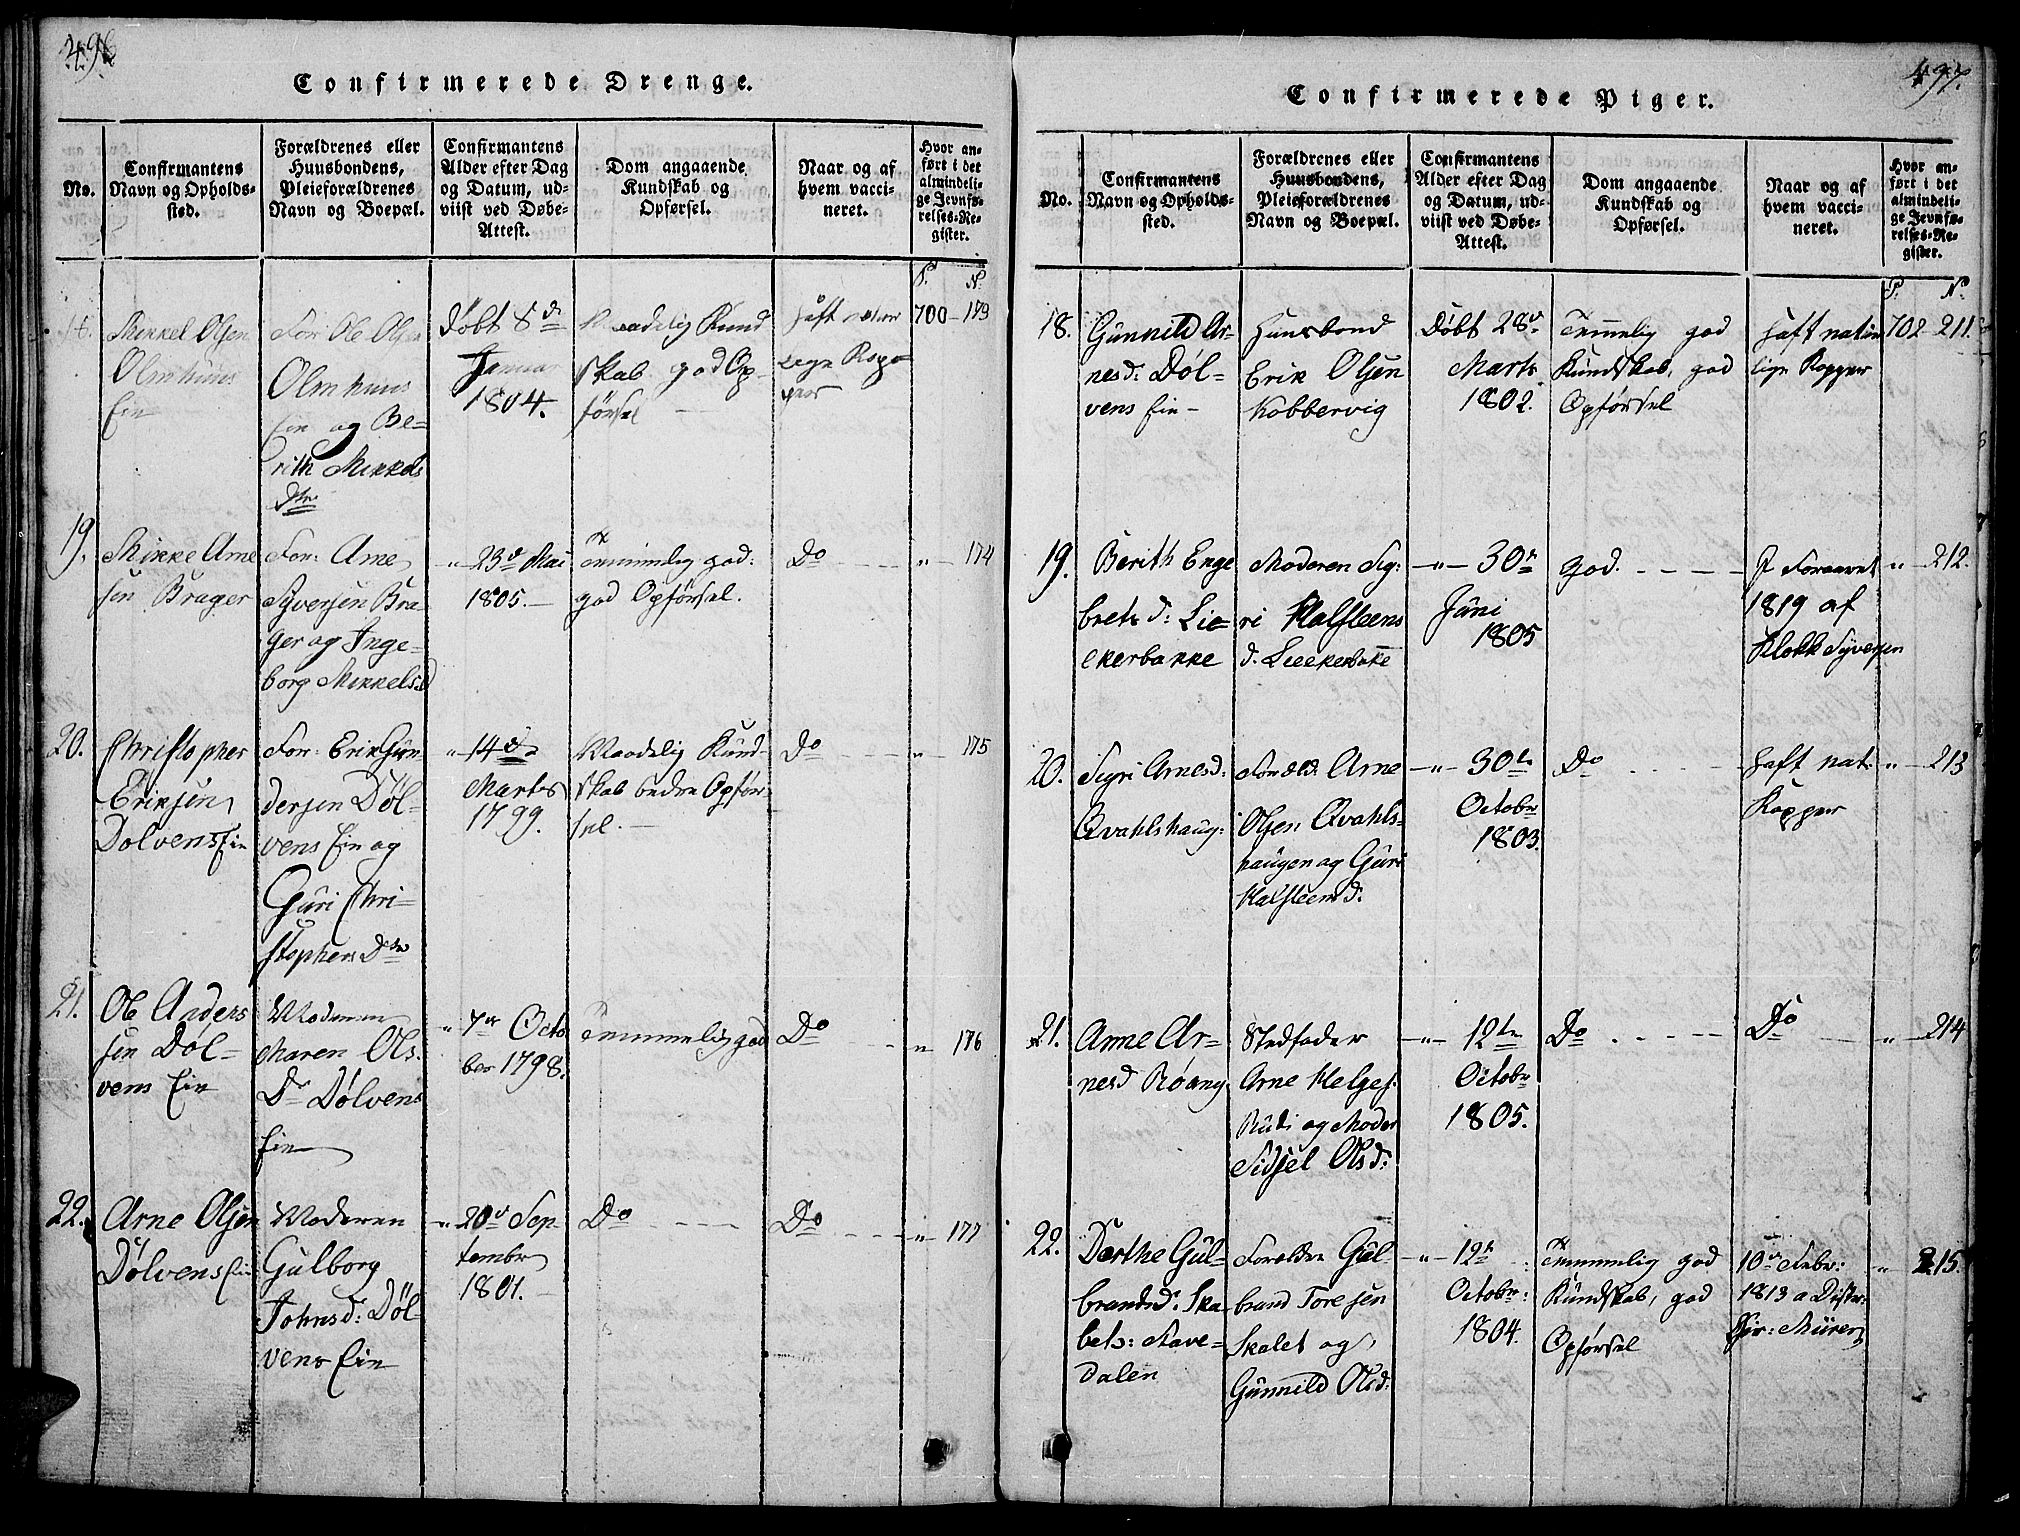 496
Confirmerede Drenge.
No.
Confirmantens
Navn og Opholds-
sted.
Forældrenes eller
Huusbondens,
Pleieforældrenes
Navn og Boepæl.
Confirmantens
Alder efter Dag
og Datum, ud-
viist ved Døbe-
Attest.
Dom angaaende
Kundskab og
Opførsel.
Naar og af
hvem vacci-
neret.
Hvor an-
ført i det
almindeli-
ge Jevnfø-
relses-Re-
gister.
P. No
Mikkel Olsen
Olmhuus
Eie
For: Ole Olsen
Olmhuus
Eie og Be-
rith Mikkels
Dtr
Døbt 8de
Januar
1804.
Maadelig Kund
skab god Op-
førsel
Haft natur
lige Kop
per
700 - 173
19.
Mikkel Arne
sen Brager
For: Arne
Syversen Bra-
ger og Inge-
borg Mikkelsd
" 23de Mai
1805.
Temmelig god:
god Opførsel.
Do
" - 174
20.
Christopher
Eriksen
Dølvens Eie
For: Erik Gun
dersen Døl-
vens Eie og
Guri Chri-
stophers Dtr
" 14de
Marts
1799.
Maadelig Kund-
skab bedre Opfør
sel.
Do
" - 175
21.
Ole Anders
sen Døl-
vens Eie
Moderen
Maren Ols.
Dr Dølvens
Eie
" 7de Octo
ber 1798.
Temmelig god
Do
" - 176
22.
Arne Olsen
Dølvens Eie
Moderen
Gulborg
Johnsd: Døl
vens Eie
" 20de Sep-
tembr
1801.
Do
Do
" - 177
497.
Confirmerede Piger.
No.
Confirmantens
Navn og Opholds-
sted.
Forældrenes eller
Huusbondens,
Pleieforældrenes
Navn og Boepæl.
Confirmantens
Alder efter Dag
og Datum, ud-
viist ved Døbe-
Attest.
Dom angaaende
Kundskab og
Opførsel.
Naar og af
hvem vacci-
neret.
Hvor an-
ført i det
almindeli-
ge Jevnfø-
relses-Re-
gister.
P. No
18.
Gunnild Ar-
nesd: Døl-
vens Eie -
Huusbond
Erik Olsen
Kobbervig
Døbt 28de
Marts
1802.
Temmelig god
Kundskab, god
Opførsel
Haft natur
lige Kopper
702 - 211.
19.
Berith Enge
brets d: Lie-
ekerbakke
Moderen Sig-
ri Halsteens
d. Lieekerbakke
- " - 30te
Juni
1805
god.
I Foraaret
1819 af
Klokk Syversen
" - 212.
20.
Sigri Arnesd:
Qvahlshaug:
Foræld: Arne
Olsen Qvahls-
haugen og Guri
Halsteensd.
- " - 30te
Octobr
1803.
Do
Haft nat.
Kopper
" - 213
21.
Anne Ar-
nesd Røang
Stedfader
Arne Helges:
Rud: og Moder
Sidsel Olsd:
- " - 12te
Octobr
1805.
Do
Do
" - 214
22.
Dorthe Gul-
brandsd: Ska-
lets: Stave-
dalen
Forældre Gul-
brand Toresen
Skalet og
Gunnild Olsd:
- " - 12te
Octobr:
1804.
Temmelig god
Kundskab, god
Opførsel
10de Febr:
1813 a Distr:
Chir: Mürer
" 215.